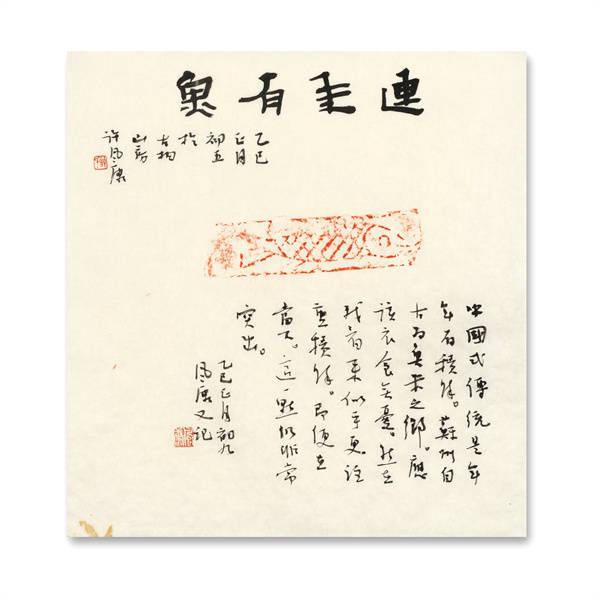 連年有魚
乙巳
正月
初五
於
古
山房
許风康
中國式傳統是年
年有積餘。蘇州自
古为魚米之鄉。應
該衣食無憂。然在
我看來似乎更注
重積餘。即便在
當下。這一點仍非常
突出。
乙巳正月初九
风康又记